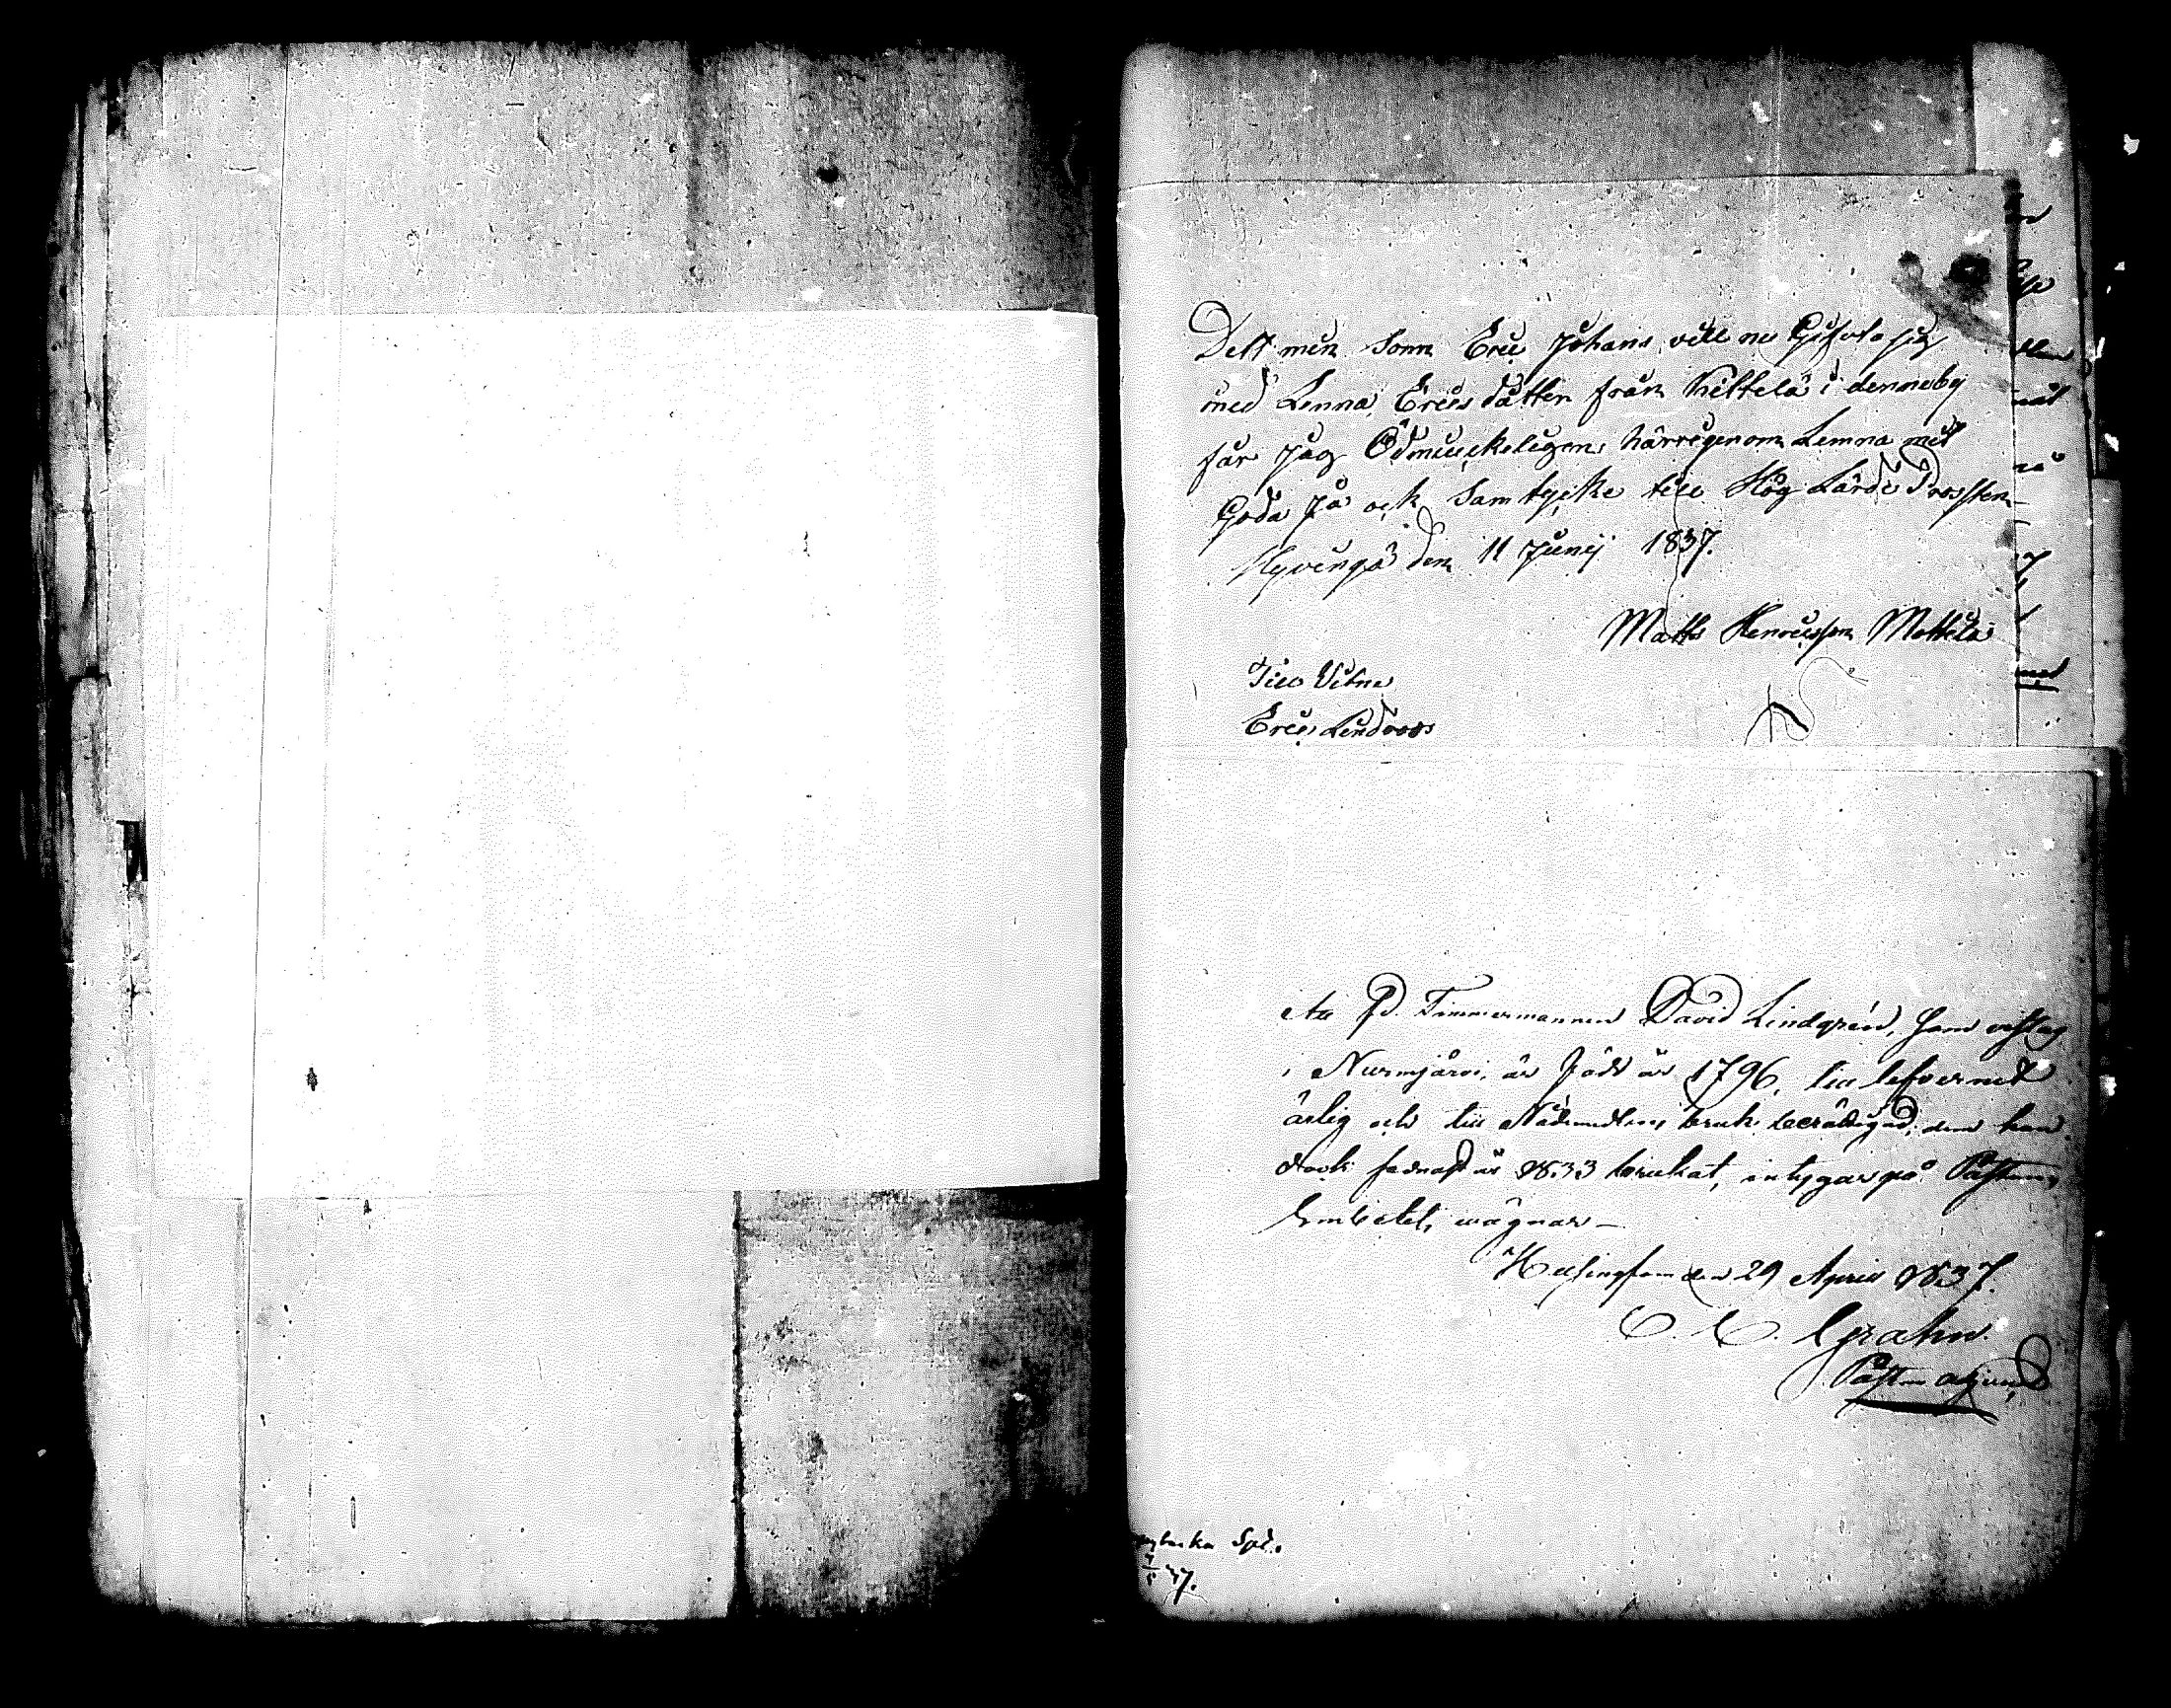 Dett min Sonn Eric Johans vill nu Gifvta sig
med Lenna Erics dåtter från Kittelä i denneby
får Jag Ödmiuckeligen härrigenom Lemna mit
Goda Ja ock Samtycke till Hög Lärde Prosten
Hyvinga den 11 Junij 1837.
Matts Henricsson Mottela
Till Vitne
Eric Lindroos
Att fd. Timmermannen David Lindgrén, som vistas
i Nurmjärvi, är född år 1796, till lefvernet
ärlig och till Nådemedlens bruk berättigad, dem han
dock sednast år 1833 brukat, intygar på Pastors
Embetets wägnar
Helsingfors den 29 April 1837.
C. Grahn
Pastors adjunct
Spl.
37.